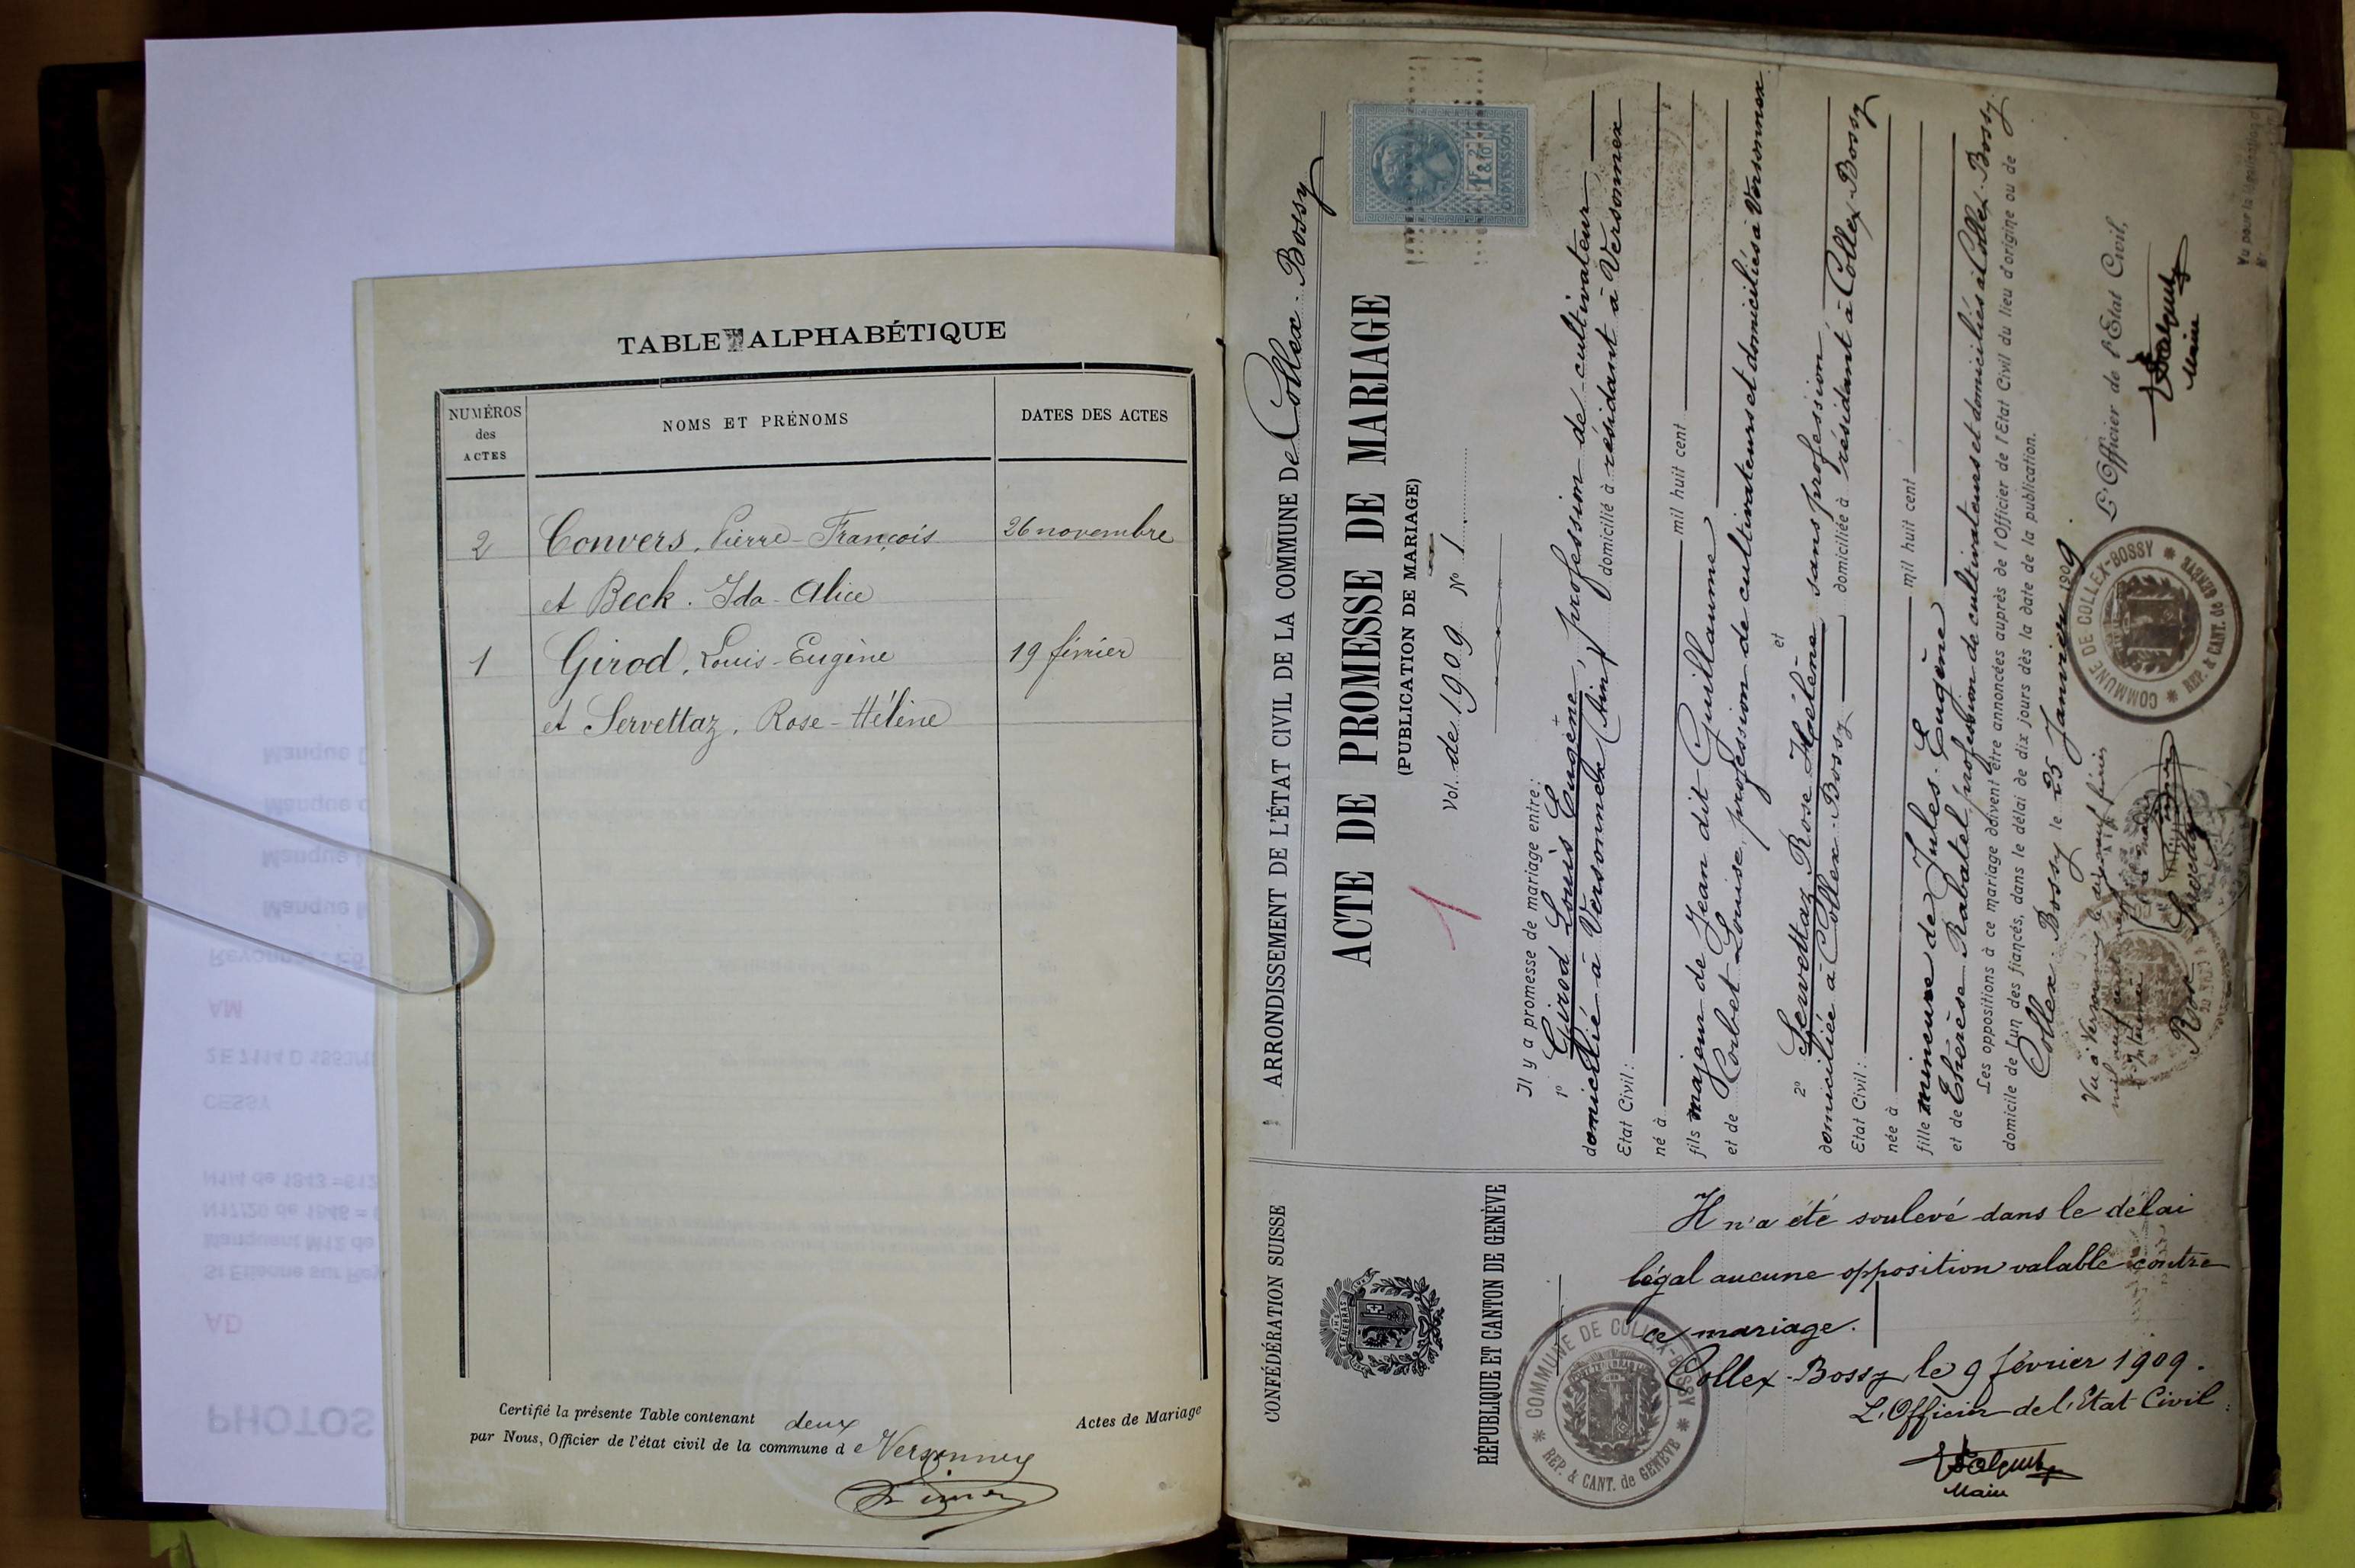 TABLE ALPHABÉTIQUE
NUMÉROS
des
ACTES
NOMS ET PRÉNOMS
DATES DES ACTES
2 Convers, Pierre-François 26 novembre
et Beck. Ida-Alice
1 Girod, Louis-Eugène 19 février
et Servettaz, Rose-Hélène
Certifié la présente Table contenant deux Actes de Mariage
par Nous, Officier de l'état civil de la commune de Versonnex
ARRONDISSEMENT DE L'ÉTAT CIVIL DE LA COMMUNE De Collex-Bossy
ACTE DE PROMESSE DE MARIAGE
(PUBLICATION DE MARIAGE)
Vol. de 1909 No 1
1
1F & 2/10
DIMENSION
Il y a promesse de mariage entre:
1o Girod Louis Eugène, profession de cultivateur
domicilié à Versonnex (Ain) domicilié à résidant à Versonnex
Etat Civil:
né à mil huit cent
fils majeur de Jean dit Guillaume
et de Corbet Louise, profession de cultivateurs et domiciliés à Versonnex
et
2o Servettaz Rose Hélène sans profession
domiciliée à Collex-Bossy domiciliée à résidant à Collex-Bossy
Etat Civil:
née à mil huit cent
fille mineure de Jules Eugène
et de Thérèse Rabatel, profession de cultivateurs et domiciliés à Collex-Bossy
Les oppositions à ce mariage doivent être annoncées auprès de l'Officier de l'Etat Civil du lieu d'origine ou de
domicile de l'un des fiancés, dans le délai de dix jours dès la date de la publication.
Collex-Bossy le 25 Janvier 1909
L'Officier de l'Etat Civil,
Maire
COMMUNE DE COLLEX-BOSSY
REP. & CANT. de GENÈVE
Vu à Versonnex le dix neuf février
mil neuf cent neuf
Le maire
Rose Servettaz
Vu pour la légalisation
CONFÉDÉRATION SUISSE
POST TENEBRAS
RÉPUBLIQUE ET CANTON DE GENÈVE
Il n'a été soulevé dans le délai
légal aucune opposition valable contre
ce mariage.
Collex-Bossy, le 9 février 1909.
L'Officier de l'Etat Civil:
Maire
COMMUNE DE COLLEX-BOSSY
REP. & CANT. de GENÈVE
Manque
Manque
Manque
Manque
AM
2E 7114 D
CESSY
N1/4 de 1843 =612
N17/20 de 1846 =
Manquent M12 de
St Etienne sur Rey
AD
PHOTOS